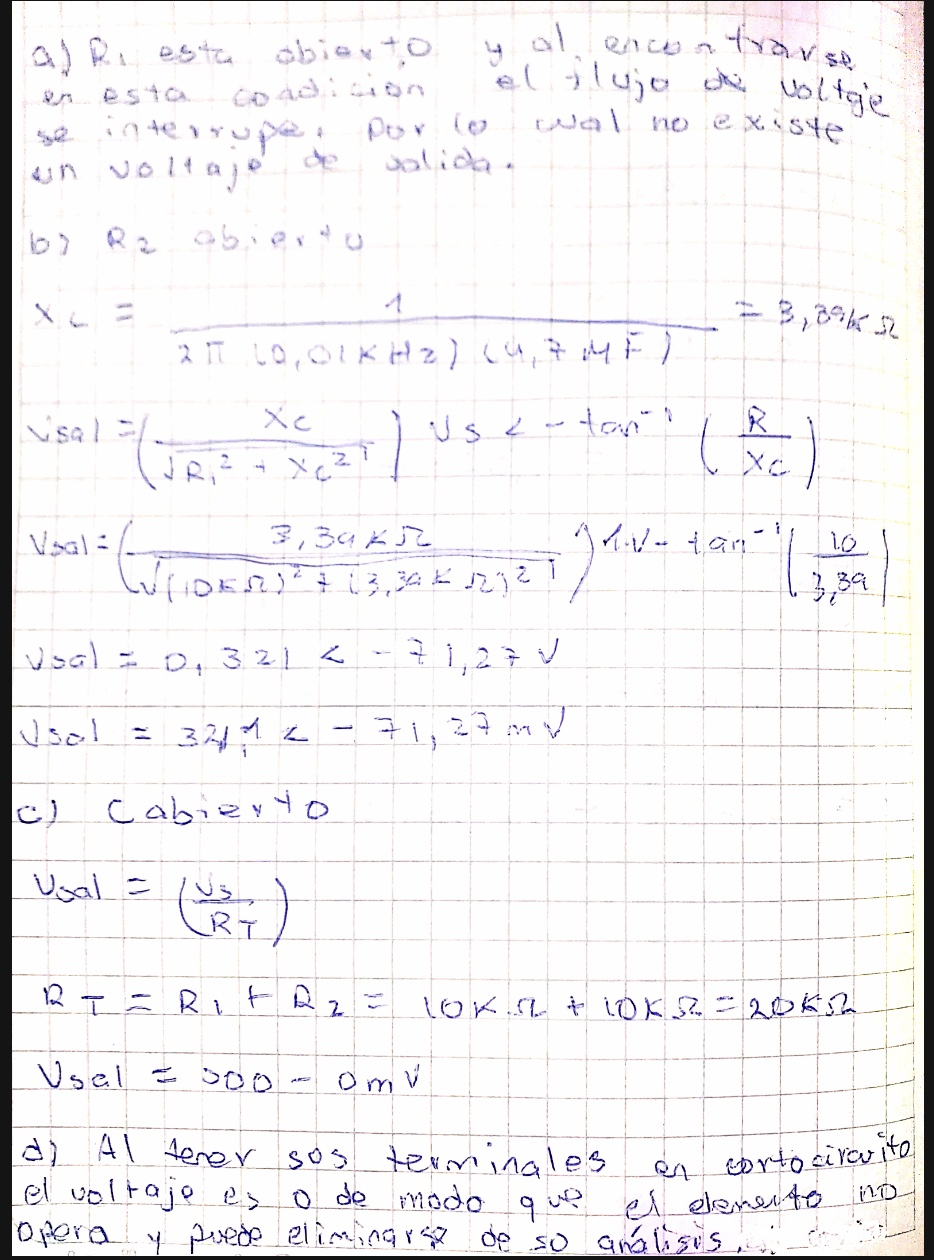 a) R₁ esta abierto y al encontrarse
en esta condicion el flujo de voltaje
se interrupe, por lo cual no existe
un voltaje de salida.
b) R₂ abierto
Xc = 1 / 2π (0,01KHz) (4,7 MF) = 3,39KΩ
Vsal = (Xc / √R₁² + Xc²) Vs < - tan⁻¹ (R / Xc)
Vsal = (3,39KΩ / √(10KΩ)² + (3,39KΩ)²) 1.V - tan⁻¹ (10 / 3,39)
Vsal = 0,321 < - 71,27 V
Vsal = 321,1 < - 71,27 mV
c) C abierto
Vsal = (Vs / RT)
RT = R₁ + R₂ = 10K.Ω + 10KΩ = 20KΩ
Vsal = 500 - 0mV
d) Al tener sos terminales en cortocircuito
el voltaje es 0 de modo que el elemento no
opera y puede eliminarse de so análisis.